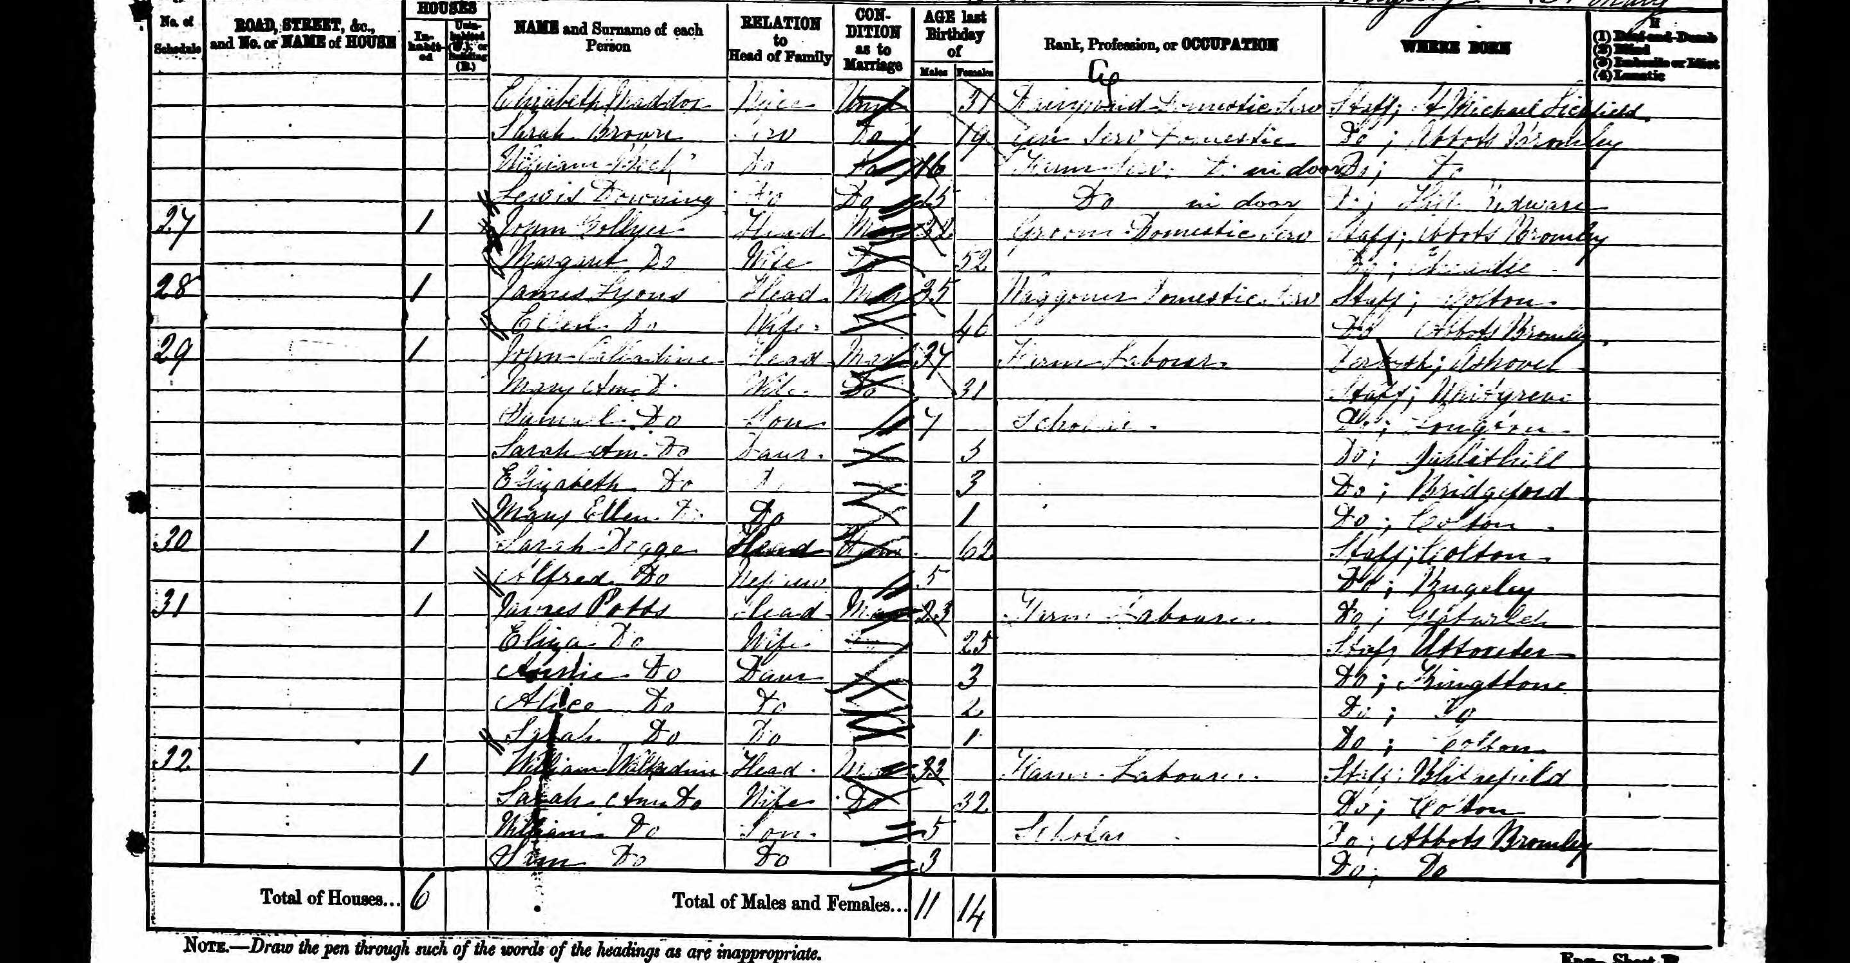 No. of Schedule ROAD, STREET, &c., and No. or NAME of HOUSE HOUSES In-habit-ed Unin-habited (U.), or Building (B.) NAME and Surname of each Person RELATION to Head of Family CON-DITION as to Marriage AGE last Birthday of Males Females Rank, Profession, or OCCUPATION WHERE BORN (1) Deaf-and-Dumb (2) Blind (3) Imbecile or Idiot (4) Lunatic
Elizabeth Niece 31 Domestic Serv Staff; St Michael Lichfield
Sarah Brown Serv Do 19 Gen Serv Domestic Do; Abbots Bromley
William Do 16 Farm Serv in door Do; Do
Lewis Downing Do Do 15 Do in door Do;
27 1 John Collyer Head Mar 32 Groom Domestic Serv Staff; Abbots Bromley
Margaret Do Wife Do 52 Do; Cheadle
28 1 James Lyons Head Mar 35 Waggoner Domestic Serv Staff; Colton
Ellen Do Wife 46 Do Abbots Bromley
29 1 John Head Mar 37 Farm Labourer Derbysh; Ashover
Mary Ann Do Wife Do 31 Staff;
Samuel Do Son 7 Scholar Do; Longdon
Sarah Ann Do Daur 5 Do;
Elizabeth Do Do 3 Do; Bridgeford
Mary Ellen Do Do 1 Do; Colton
30 1 Sarah Degge Head 62 Staff; Colton
Alfred Do Nephew 5 Do; Rugeley
31 1 James Potts Head Mar 23 Farm Labourer Do;
Eliza Do Wife 25 Staff; Uttoxeter
Annie Do Daur 3 Do; Kingstone
Alice Do Do 2 Do; Do
Sarah Do Do 1 Do; Colton
32 1 William Head Mar 33 Farm Labourer Staff; Blithfield
Sarah Ann Do Wife Do 32 Do; Colton
William Do Son 5 Scholar Do; Abbots Bromley
Do Do 3 Do; Do
Total of Houses... 6 Total of Males and Females... 11 14
NOTE.—Draw the pen through such of the words of the headings as are inappropriate.